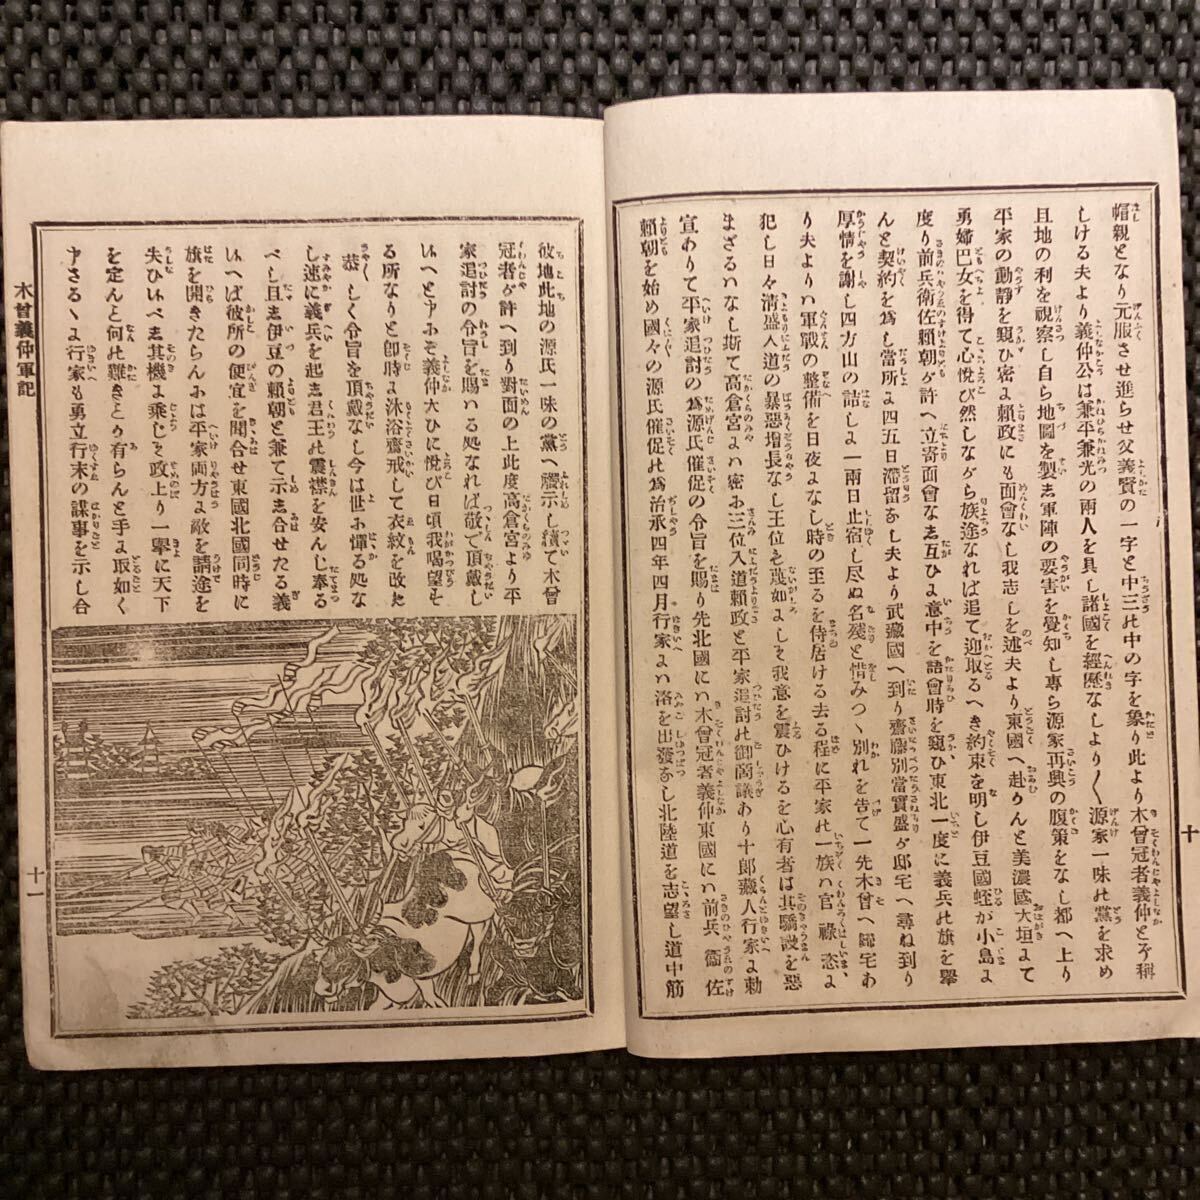 帽親となり元服させ進らせ父義賢の一字と中三の中の字を象り此より木曾冠者義仲とぞ稱
しける夫より義仲公は兼平兼光の兩人を具し諸國を經歷なしより〱源家一味の黨を求め
且地の利を視察し自ら地圖を製し軍陣の要害を覺知し專ら源家再興の腹策をなし都へ上り
平家の動靜を窺ひ密に賴政にも面會なし我志しを述夫より東國へ赴かんと美濃國大垣にて
勇婦巴女を得て心悅び然しながら旅途なれば追て迎取るへき約束を明し伊豆國蛭が小島に
度り前兵衛佐賴朝が許へ立寄面會なし互ひに意中を語會時を窺ひ東北一度に義兵の旗を擧
んと契約を爲し當所に四五日滯留なし夫より武藏國へ到り齋藤別當實盛が邸宅へ尋ね到り
厚情を謝し四方山の話しに一兩日止宿し尽ぬ名殘と惜みつゝ別れを告て一先木曾へ歸宅あ
り夫よりハ軍戰の整備を日夜になし時の至るを待居ける去る程に平家の一族ハ官祿恣に
犯し日々淸盛入道の暴惡增長なし王位を蔑如にして我意を震ひけるを心有者は其驕毅を惡
まざるハなし斯て高倉宮にハ密に三位入道賴政と平家追討の御商議あり十郞藏人行家に勅
宣ありて平家追討の爲源氏催促の令旨を賜り先北國にハ木曾冠者義仲東國にハ前兵衞佐
賴朝を始め國々の源氏催促の爲治承四年四月行家にハ洛を出發なし北陸道を志望し道中筋
十
彼地此地の源氏一味の黨へ禮示し續て木曾
冠者が許へ到り對面の上此度高倉宮より平
家追討の令旨を賜ハる処なれば敬で頂戴し
いへと申にぞ義仲大ひに悅び日頃我喝望せ
る所なりと卽時に沐浴齋戒して衣紋を改た
恭〱しく令旨を頂戴なし今は世に憚る処な
し速に義兵を起し君王の震襟を安んじ奉る
べし且し伊豆の賴朝と兼て示し合せたる義
いへば彼所の便宜を聞合せ東國北國同時に
旗を開きたらんには平家兩方に敵を請途を
失ひいべし其機に乘して攻上り一擧に天下
を定んと何の難きとり有らんと手に取如く
申さるゝに行家も勇立行末の謀事を示し合
木曾義仲軍記
十一